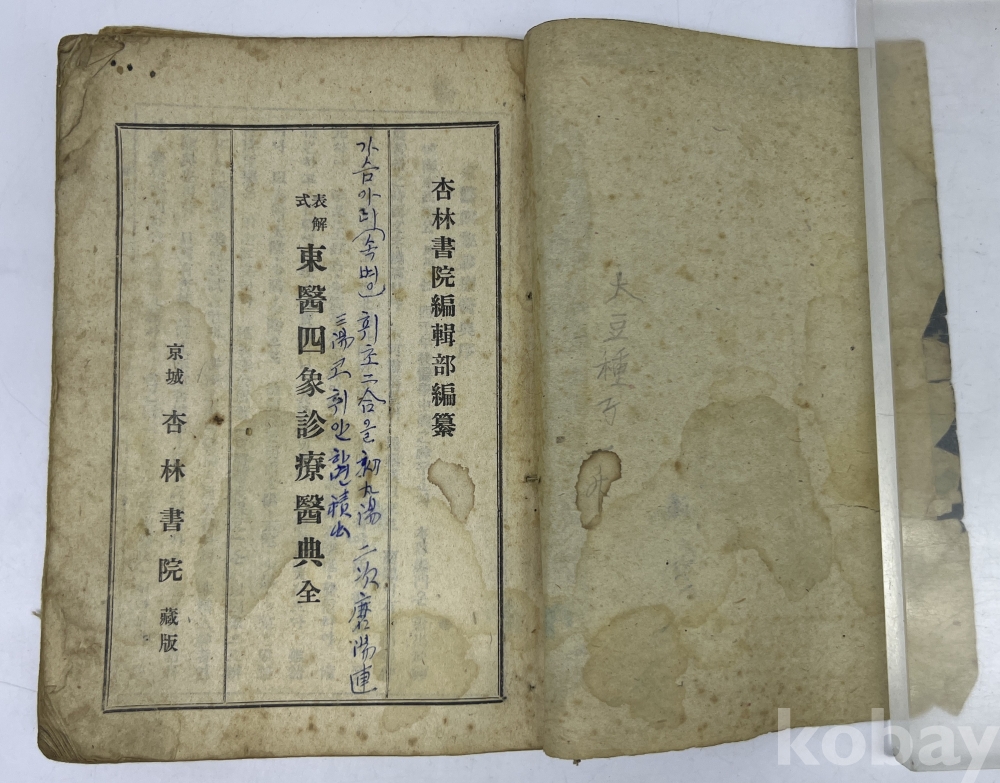 杏林書院編輯部編纂
가슴아리(속병) 휘초二合을 初九湯 二次磨湯連
三湯코 취안하면積出
表解式 東醫四象診療醫典 全
京城 杏林書院 藏版
大豆種子
kobay